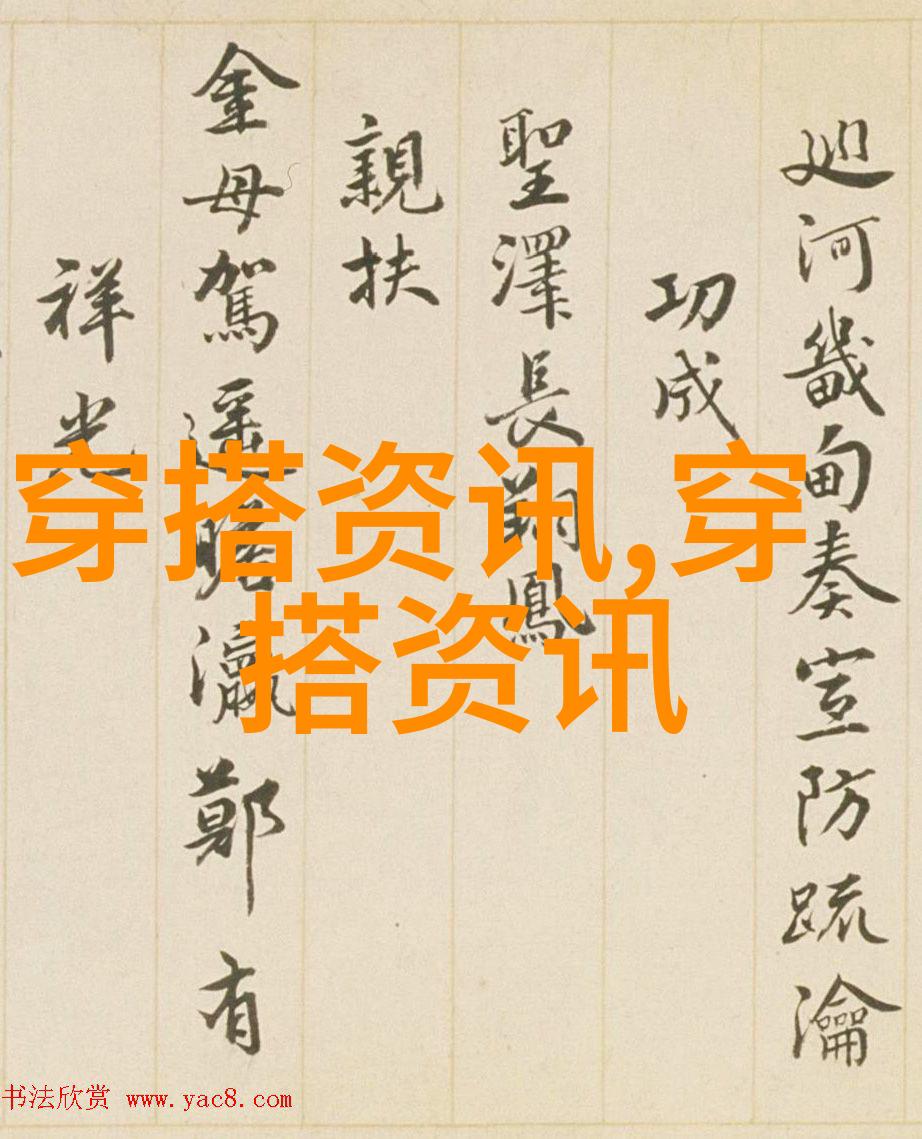 廵河畿甸奏宣防疏瀹
功成
聖澤長翔鳳
親扶
金母駕遥瞻瀛鄚有
祥光
穿搭资讯,穿
搭资讯
书法欣赏 www.yac8.com